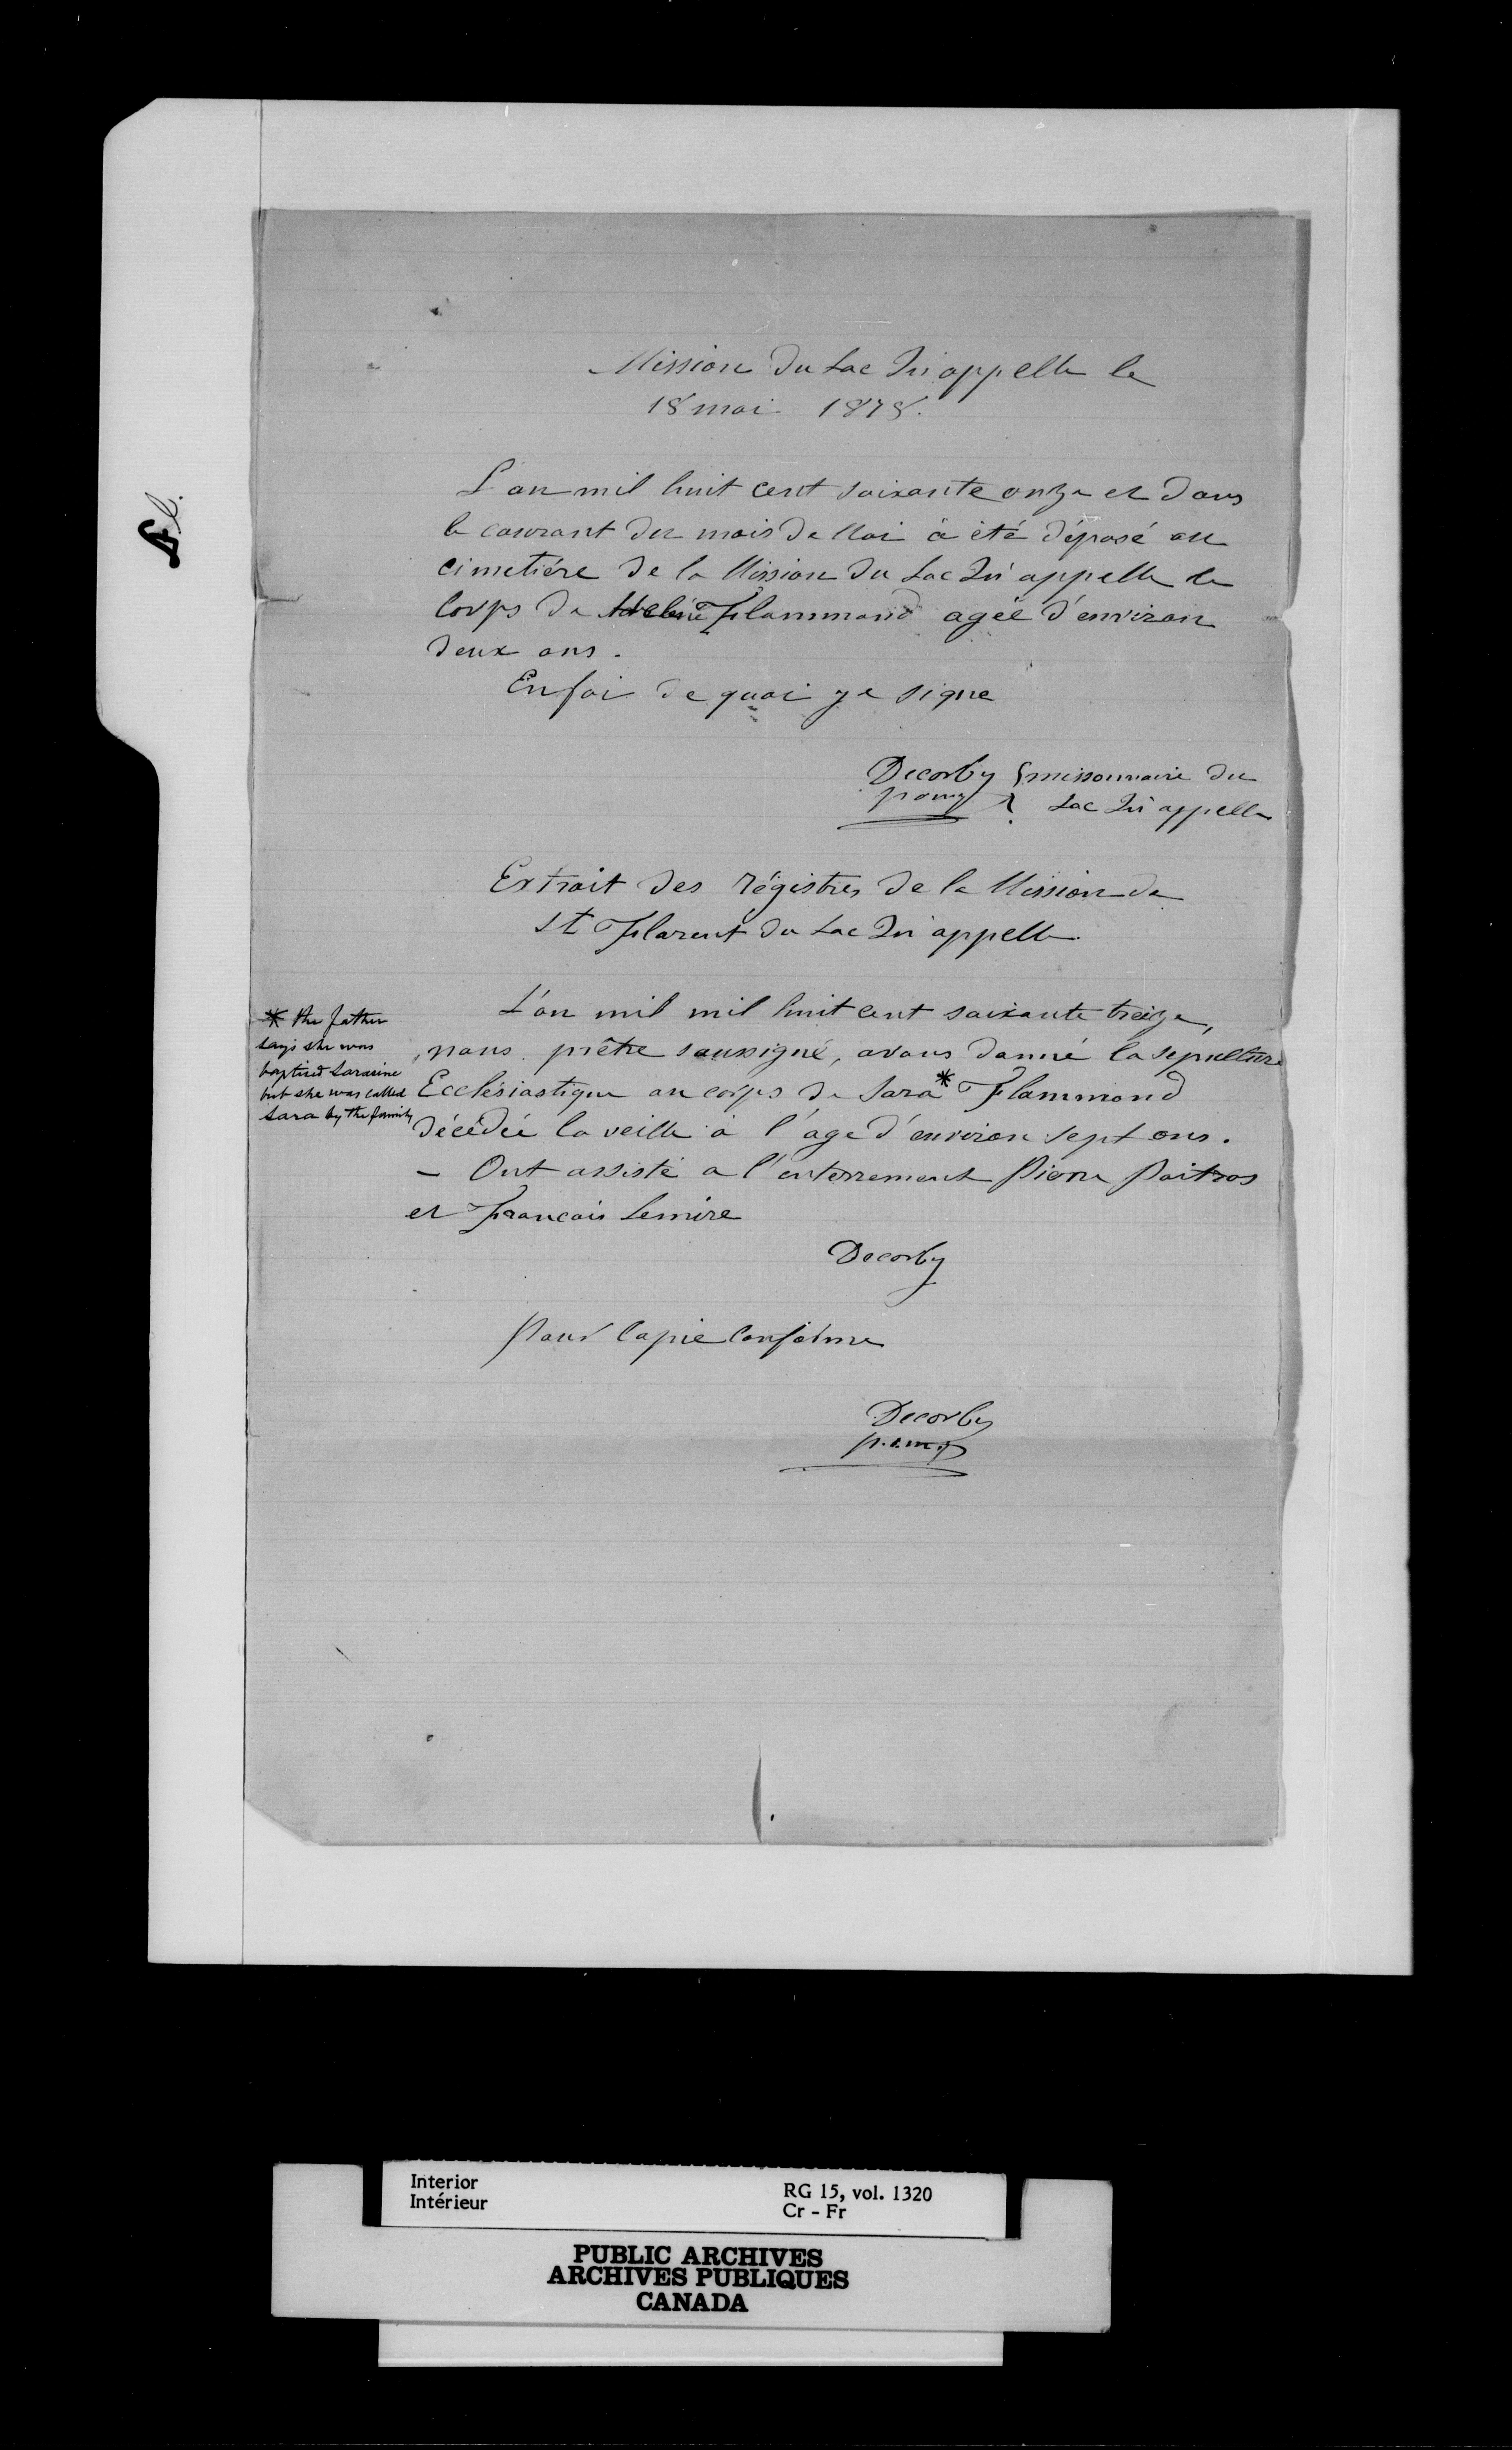 Mission du Lac Qu'appelle le
18 mai 1878.
L'an mil huit cent soixante onze et dans
le courant du mois de Mai à été déposé au
cimetière de la Mission du Lac Qu'appelle le
Corps de Flammand agée d'environ
deux ans.
En foi de quoi je signe
Decorby { missonnaire du
p.o.m.j. Lac Qu'appelle
Extrait des régistres de la Mission de
St Florent du Lac Qu'appelle
L'an mil mil huit cent soixante treize,
nous prêtre soussigné, avons donné la sepulture
Ecclésiastique au corps de Sara * Flammond
décédée la veille à l'age d'environ sept ans.
- Ont assisté a l'enterrement Pierre Poitras
et Francois Lemire
Decorby
Pour Copie Conforme
Decorby
p.o.m.j.
* the father
says she was
baptised Sarasine
but she was called
Sara by the family
Interior
Intérieur
RG 15, vol. 1320
Cr - Fr
PUBLIC ARCHIVES
ARCHIVES PUBLIQUES
CANADA